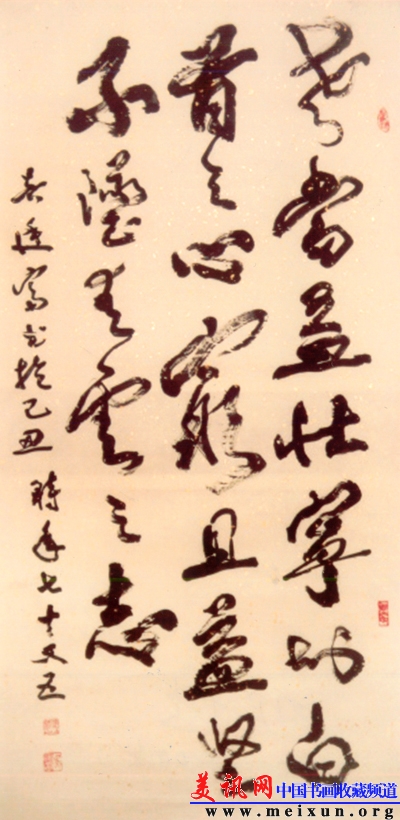 老當益壮寧知白
首之心窮且益坚
不墜青雲之志
於乙丑 時年七十又五
美讯网 中国书画收藏频道
www.meixun.org